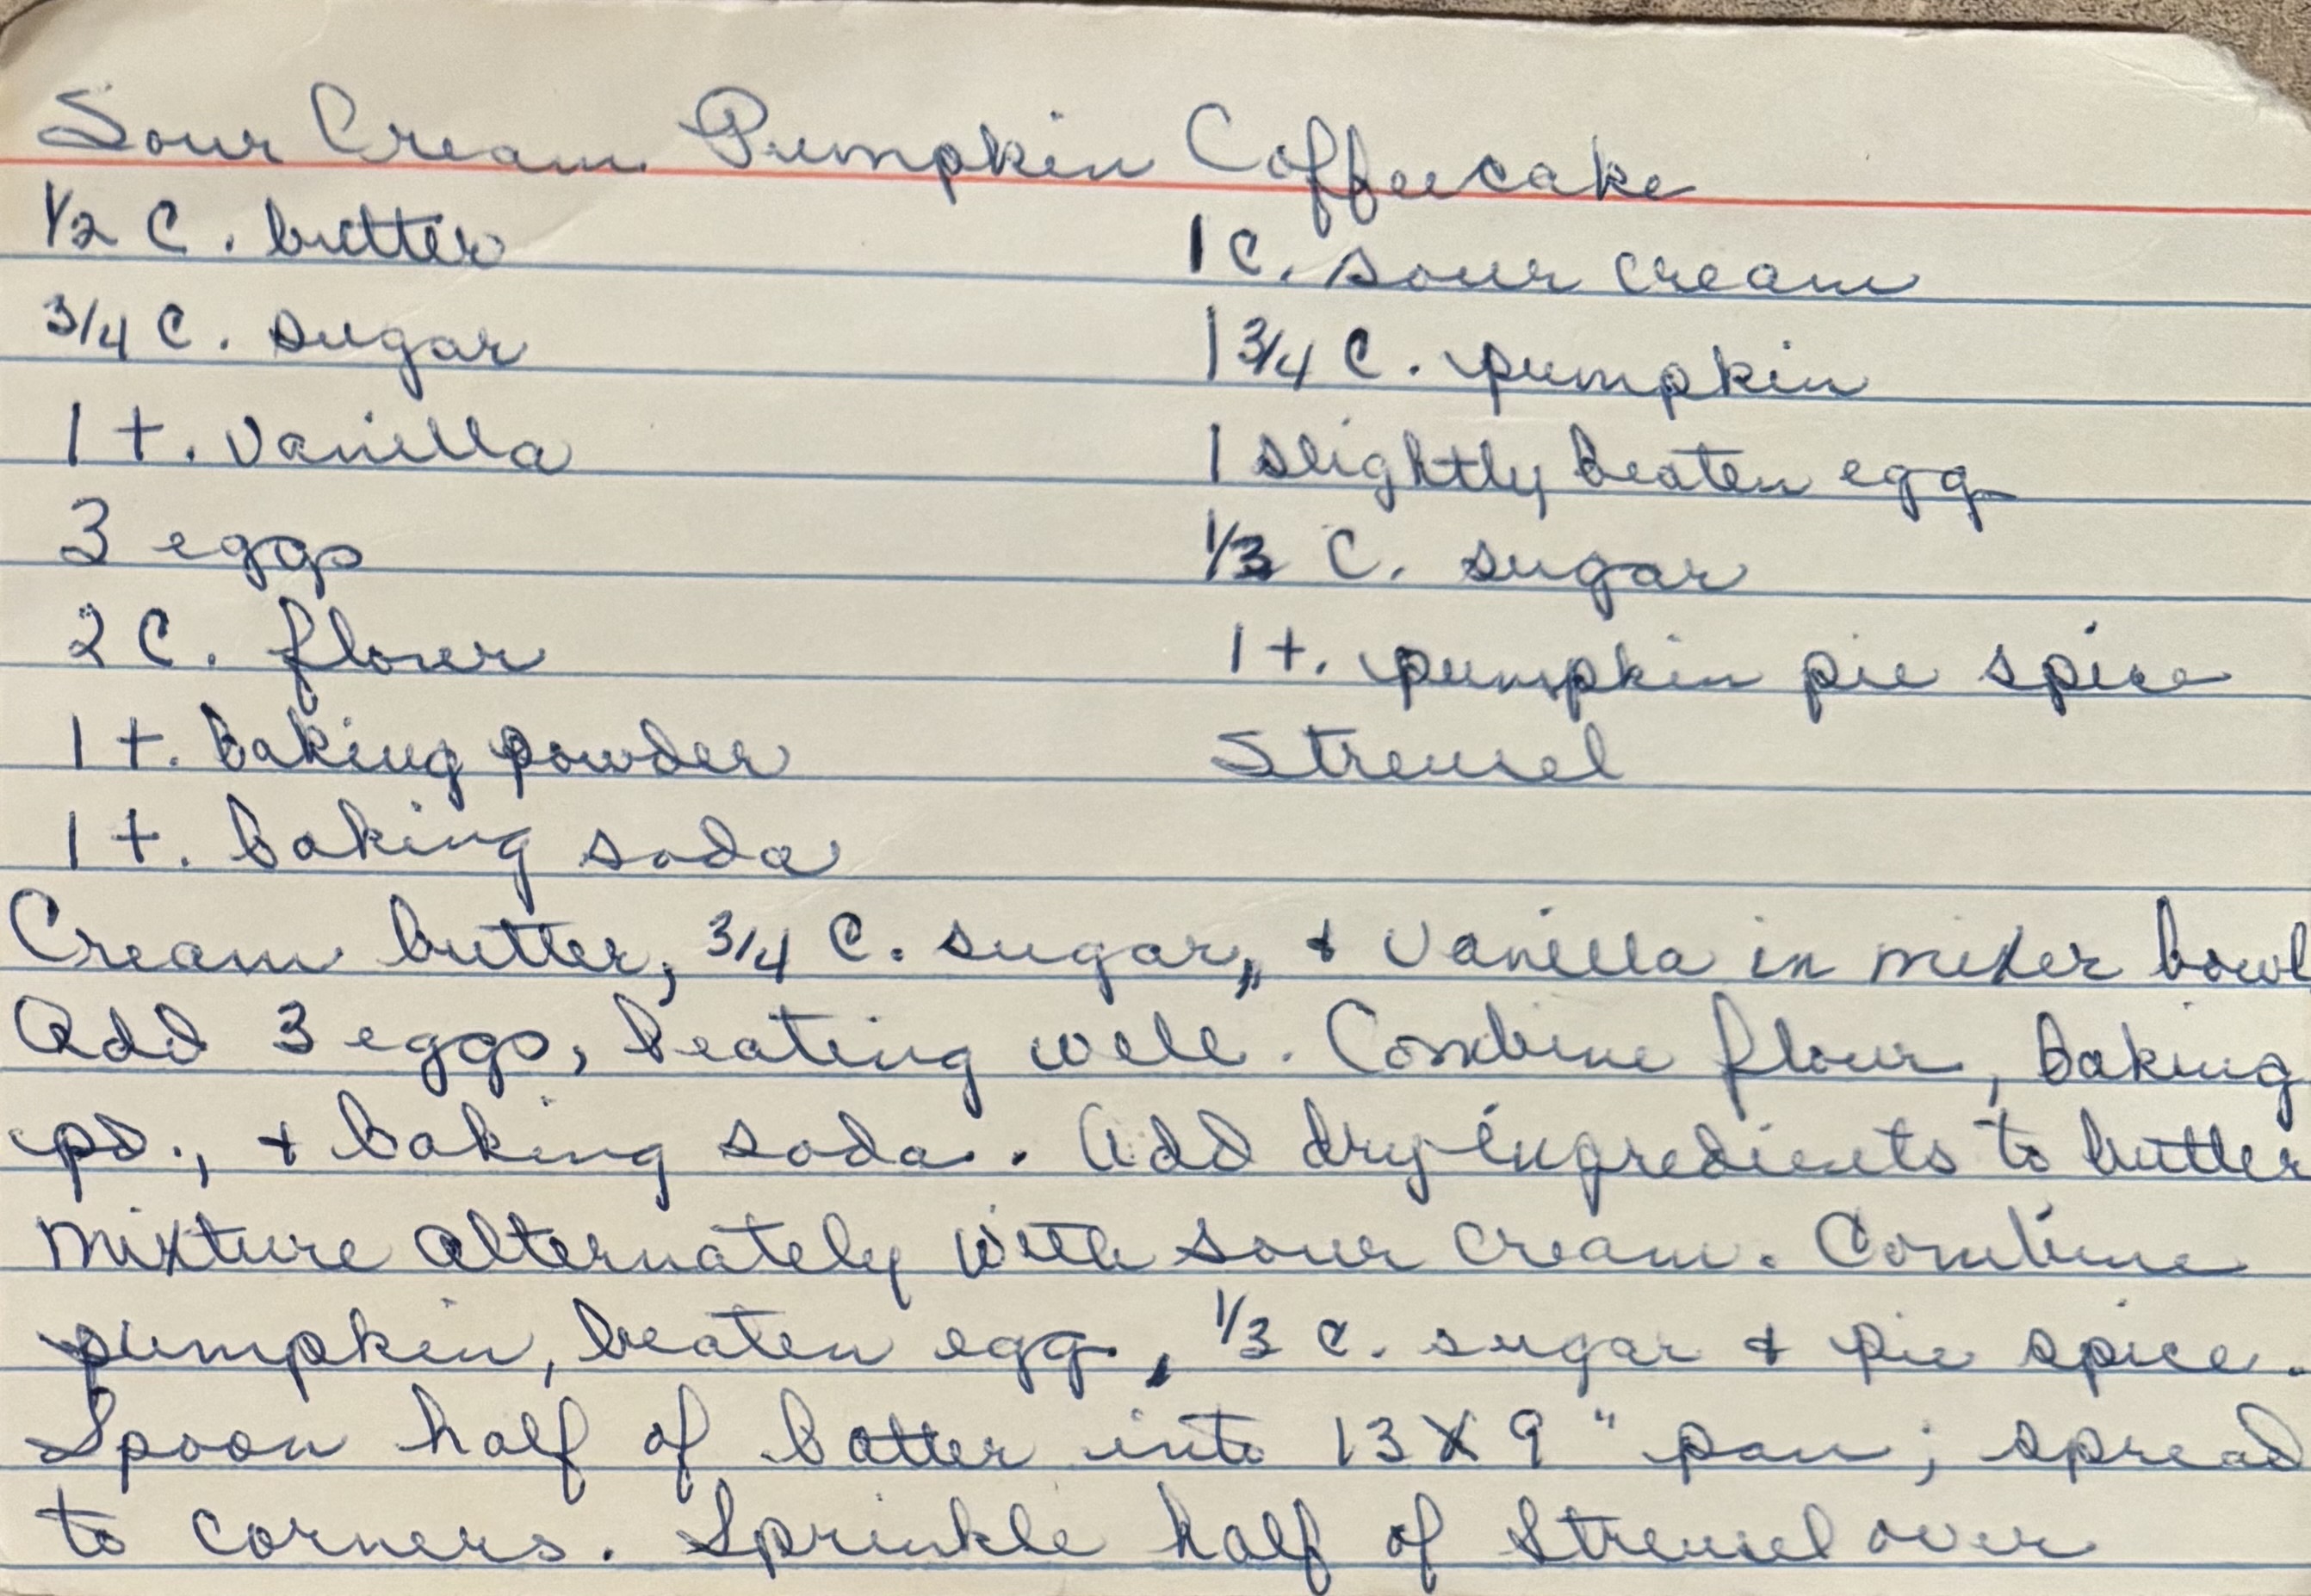 Sour Cream Pumpkin Coffeecake
½ C. butter
¾ C. sugar
1 t. vanilla
3 eggs
2 C. flour
1 t. baking powder
1 t. baking soda
1 c. sour cream
1 ¾ C. pumpkin
1 slightly beaten egg
⅓ C. sugar
1 t. pumpkin pie spice
Streusel
Cream butter, ¾ C. sugar, & vanilla in mixer bowl
Add 3 eggs, beating well. Combine flour, baking
pd., & baking soda. Add dry ingredients to butter
mixture alternately with sour cream. Combine
pumpkin, beaten egg, ⅓ c. sugar & pie spice.
Spoon half of batter into 13 X 9" pan; spread
to corners. Sprinkle half of Streusel over